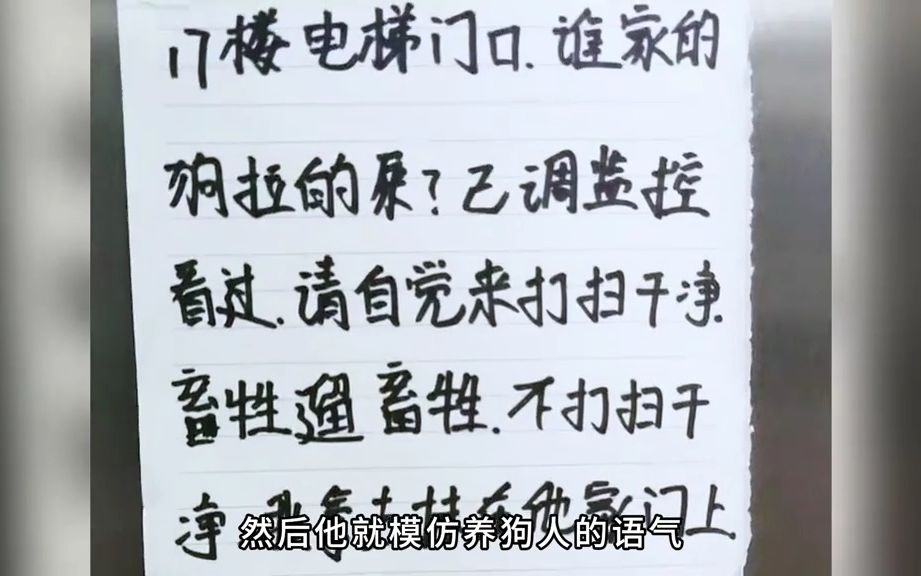 17楼电梯门口.谁家的
狗拉的屎?已调监控
看过.请自觉来打扫干净.
畜牲遛畜牲.不打扫干
净 在他家门上
然后他就模仿养狗人的语气